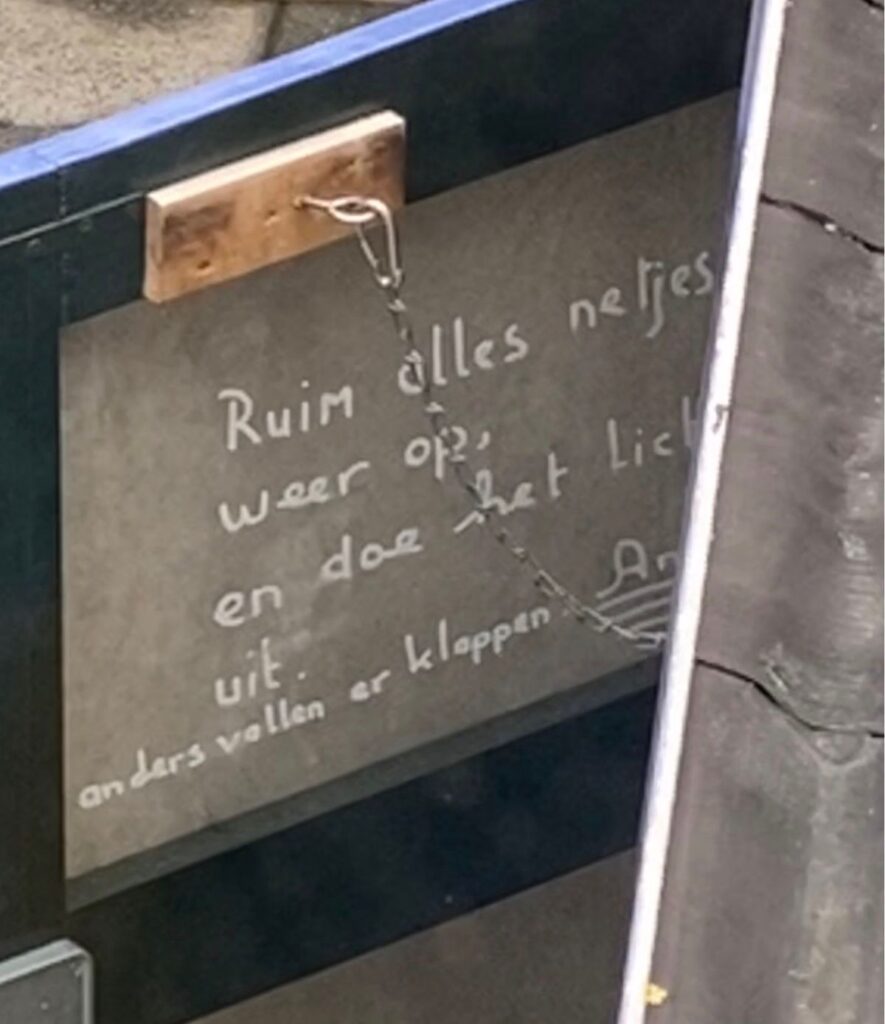 Ruim alles netjes
weer op,
en doe het lich
uit.
An
anders vallen er klappen.